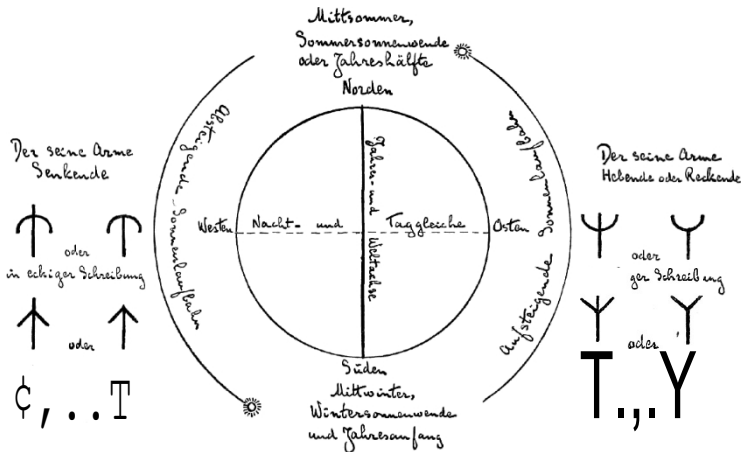 Mittsommer,
Sommersonnenwende
oder Jahreshälfte
Norden
Absteigende Sonnenlaufbahn
Aufsteigende Sonnenlaufbahn
Der seine Arme
Senkende
oder
in eckiger Schreibung
oder
¢,..T
Westen
Nacht- und Taggleiche
Osten
Jahres- und
Weltachse
Der seine Arme
Hebende oder Reckende
oder
ger Schreibung
oder
T.,.Y
Süden
Mittwinter,
Wintersonnenwende
und Jahresanfang